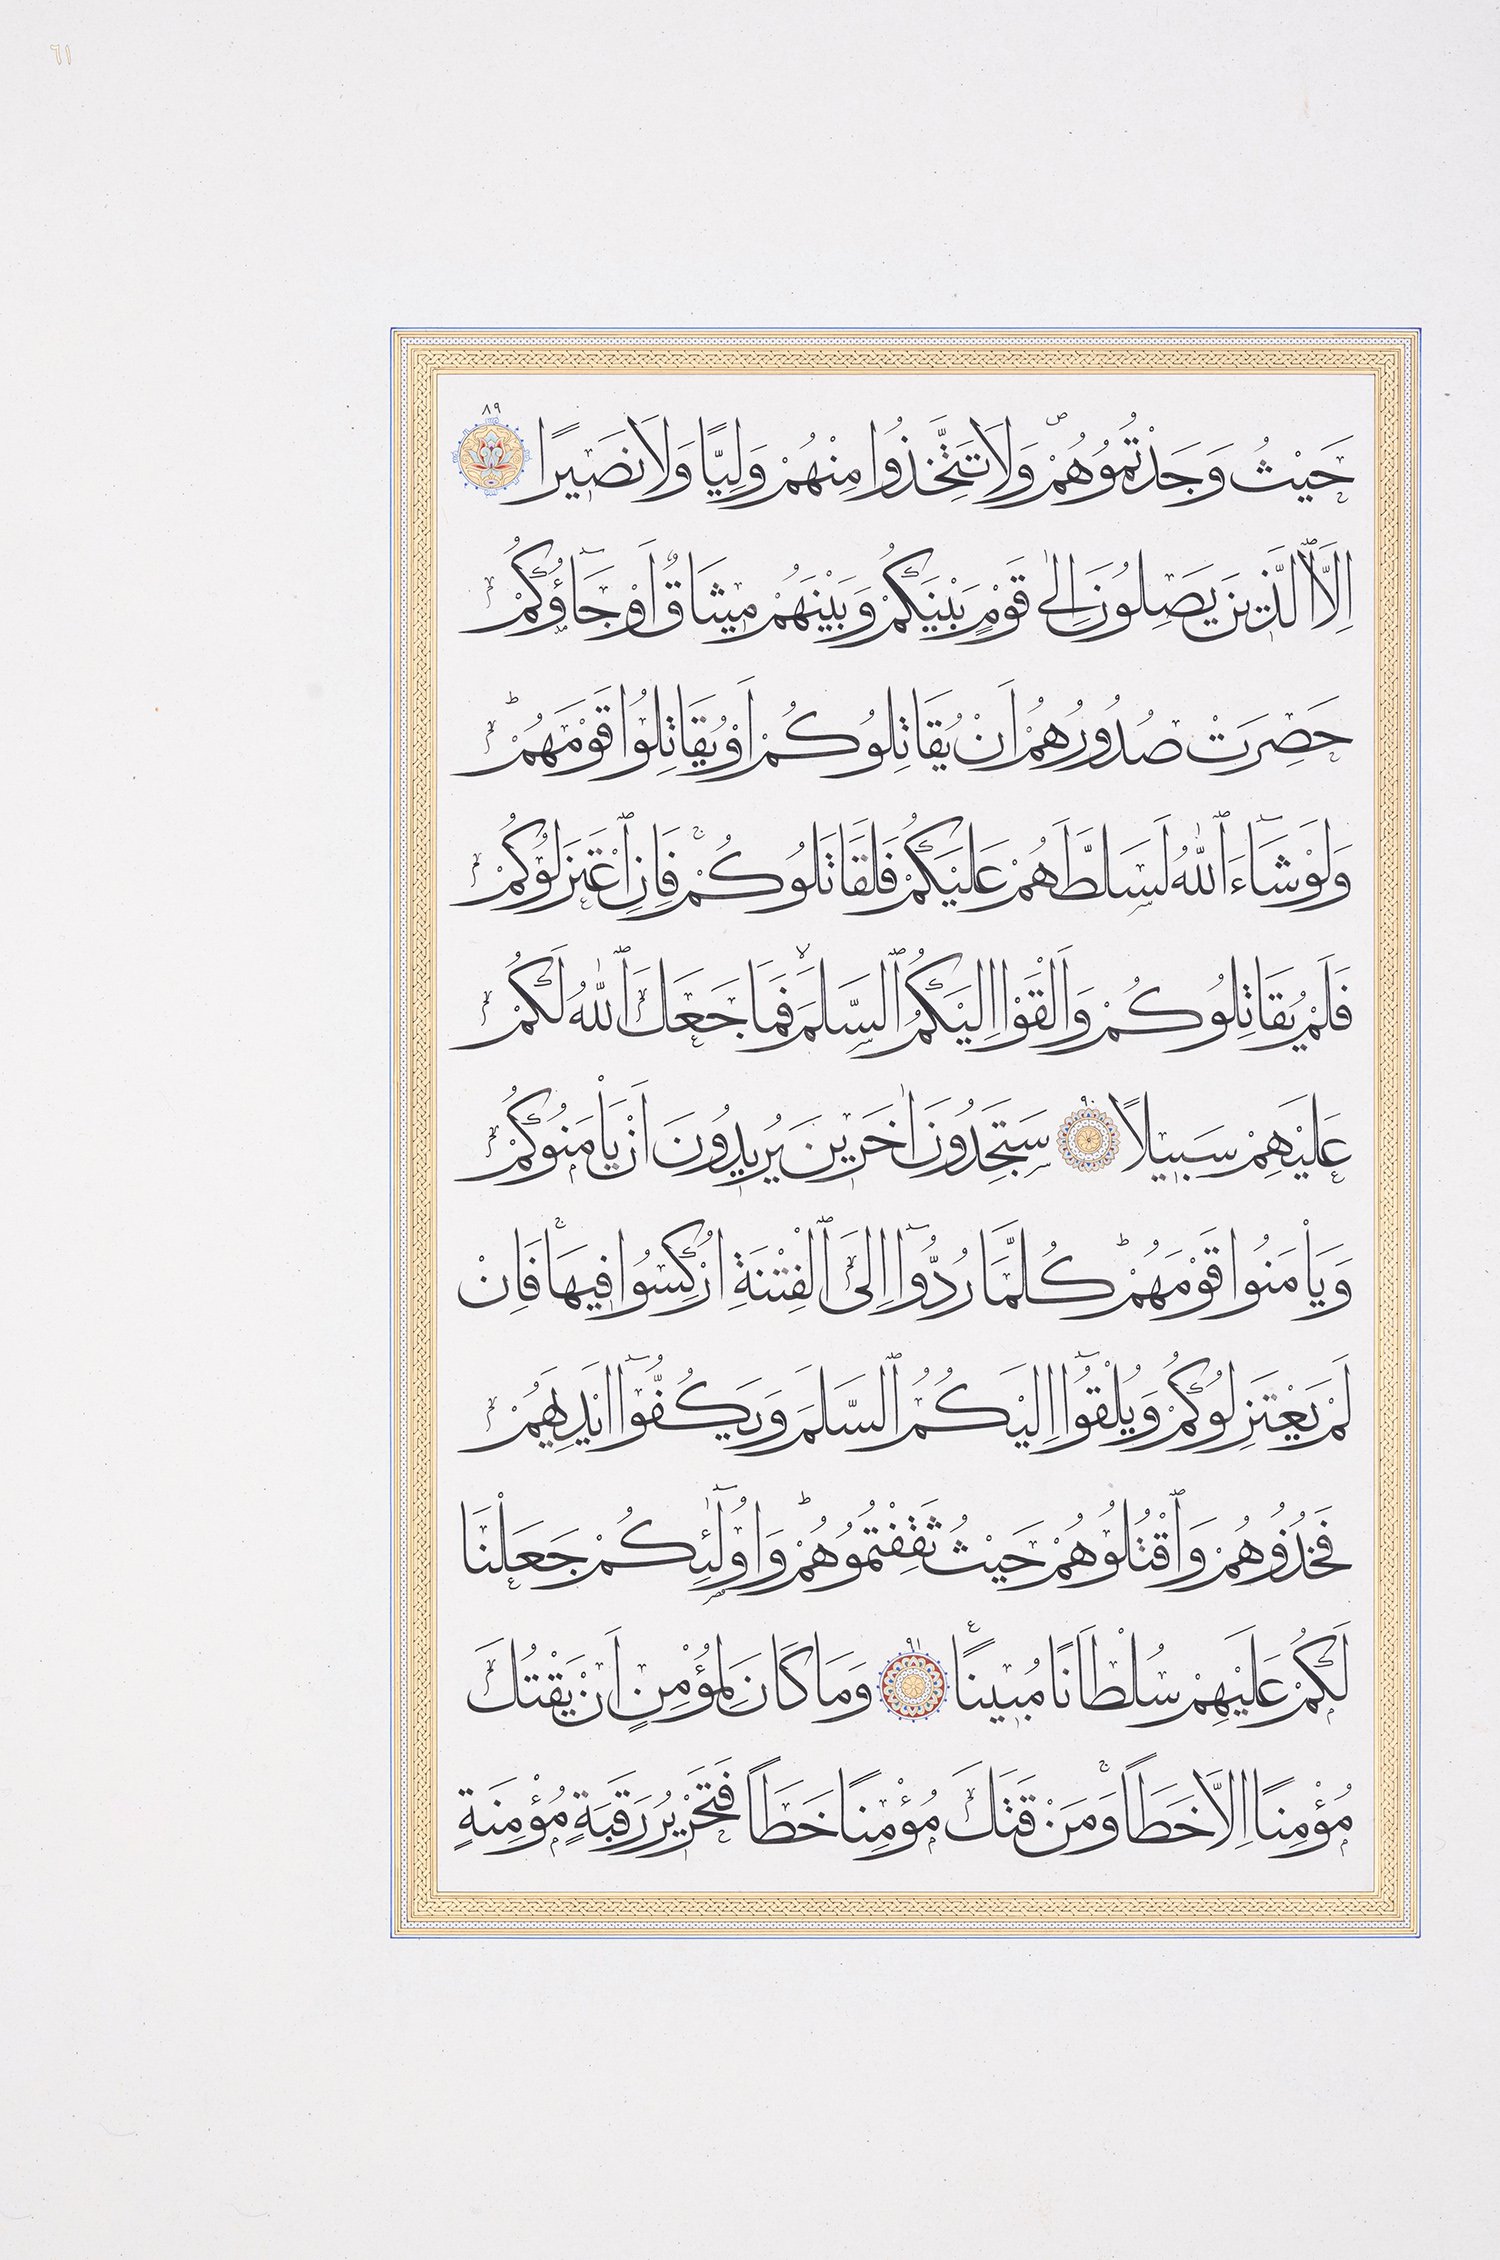 ٦١
حَيْثُ وَجَدْتُمُوهُمْ ۖ وَلَا تَتَّخِذُوا مِنْهُمْ وَلِيًّا وَلَا نَصِيرًا ٨٩
اِلَّا ٱلَّذِينَ يَصِلُونَ اِلٰى قَوْمٍ بَيْنَكُمْ وَبَيْنَهُمْ مِيثَاقٌ اَوْ جَآؤُكُمْ
حَصِرَتْ صُدُورُهُمْ اَنْ يُقَاتِلُوكُمْ اَوْ يُقَاتِلُوا قَوْمَهُمْ ؕ
وَلَوْ شَآءَ ٱللّٰهُ لَسَلَّطَهُمْ عَلَيْكُمْ فَلَقَاتَلُوكُمْ ۚ فَاِنِ ٱعْتَزَلُوكُمْ
فَلَمْ يُقَاتِلُوكُمْ وَاَلْقَوْا اِلَيْكُمُ ٱلسَّلَمَ ۙ فَمَا جَعَلَ ٱللّٰهُ لَكُمْ
عَلَيْهِمْ سَبِيلًا ٩٠ سَتَجِدُونَ اٰخَرِينَ يُرِيدُونَ اَنْ يَاْمَنُوكُمْ
وَيَاْمَنُوا قَوْمَهُمْ ؕ كُلَّمَا رُدُّوٓا اِلَى ٱلْفِتْنَةِ اُرْكِسُوا فِيهَا ۚ فَاِنْ
لَمْ يَعْتَزِلُوكُمْ وَيُلْقُوٓا اِلَيْكُمُ ٱلسَّلَمَ وَيَكُفُّوٓا اَيْدِيَهُمْ
فَخُذُوهُمْ وَٱقْتُلُوهُمْ حَيْثُ ثَقِفْتُمُوهُمْ ؕ وَاُولٰٓئِكُمْ جَعَلْنَا
لَكُمْ عَلَيْهِمْ سُلْطَانًا مُبِينًا ٩١ وَمَا كَانَ لِمُؤْمِنٍ اَنْ يَقْتُلَ
مُؤْمِنًا اِلَّا خَطَـًٔا ۚ وَمَنْ قَتَلَ مُؤْمِنًا خَطَـًٔا فَتَحْرِيرُ رَقَبَةٍ مُؤْمِنَةٍ